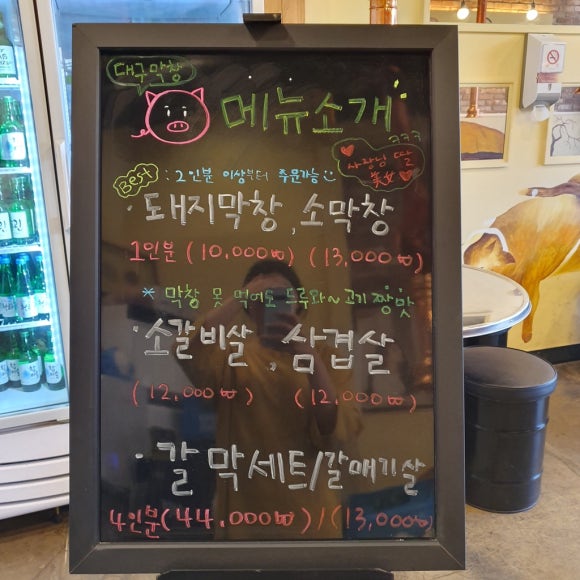 대구막창
메뉴소개
ㅋㅋㅋ
사장님 딸
美女
Best : 2인분 이상부터 주문가능
· 돼지막창, 소막창
1인분 (10,000₩) (13,000₩)
* 막창 못 먹어도 드루와~ 고기 짱맛
· 소갈비살, 삼겹살
(12,000₩) (12,000₩)
· 갈막세트/갈매기살
4인분(44,000₩)/(13,000₩)